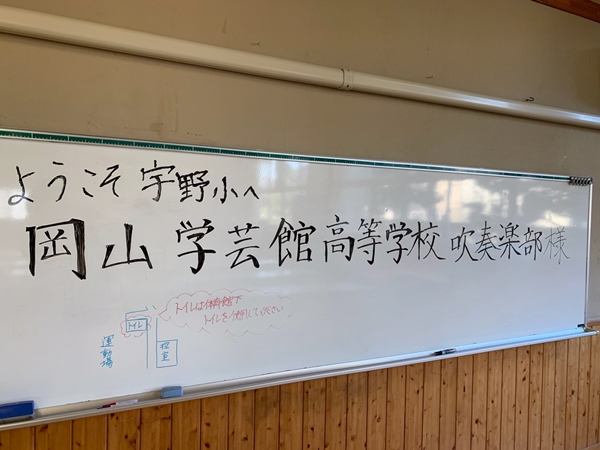 ようこそ宇野小へ
岡山学芸館高等学校 吹奏楽部様
トイレは体育館下
トイレを使用してください
トイレ
運動場
控室